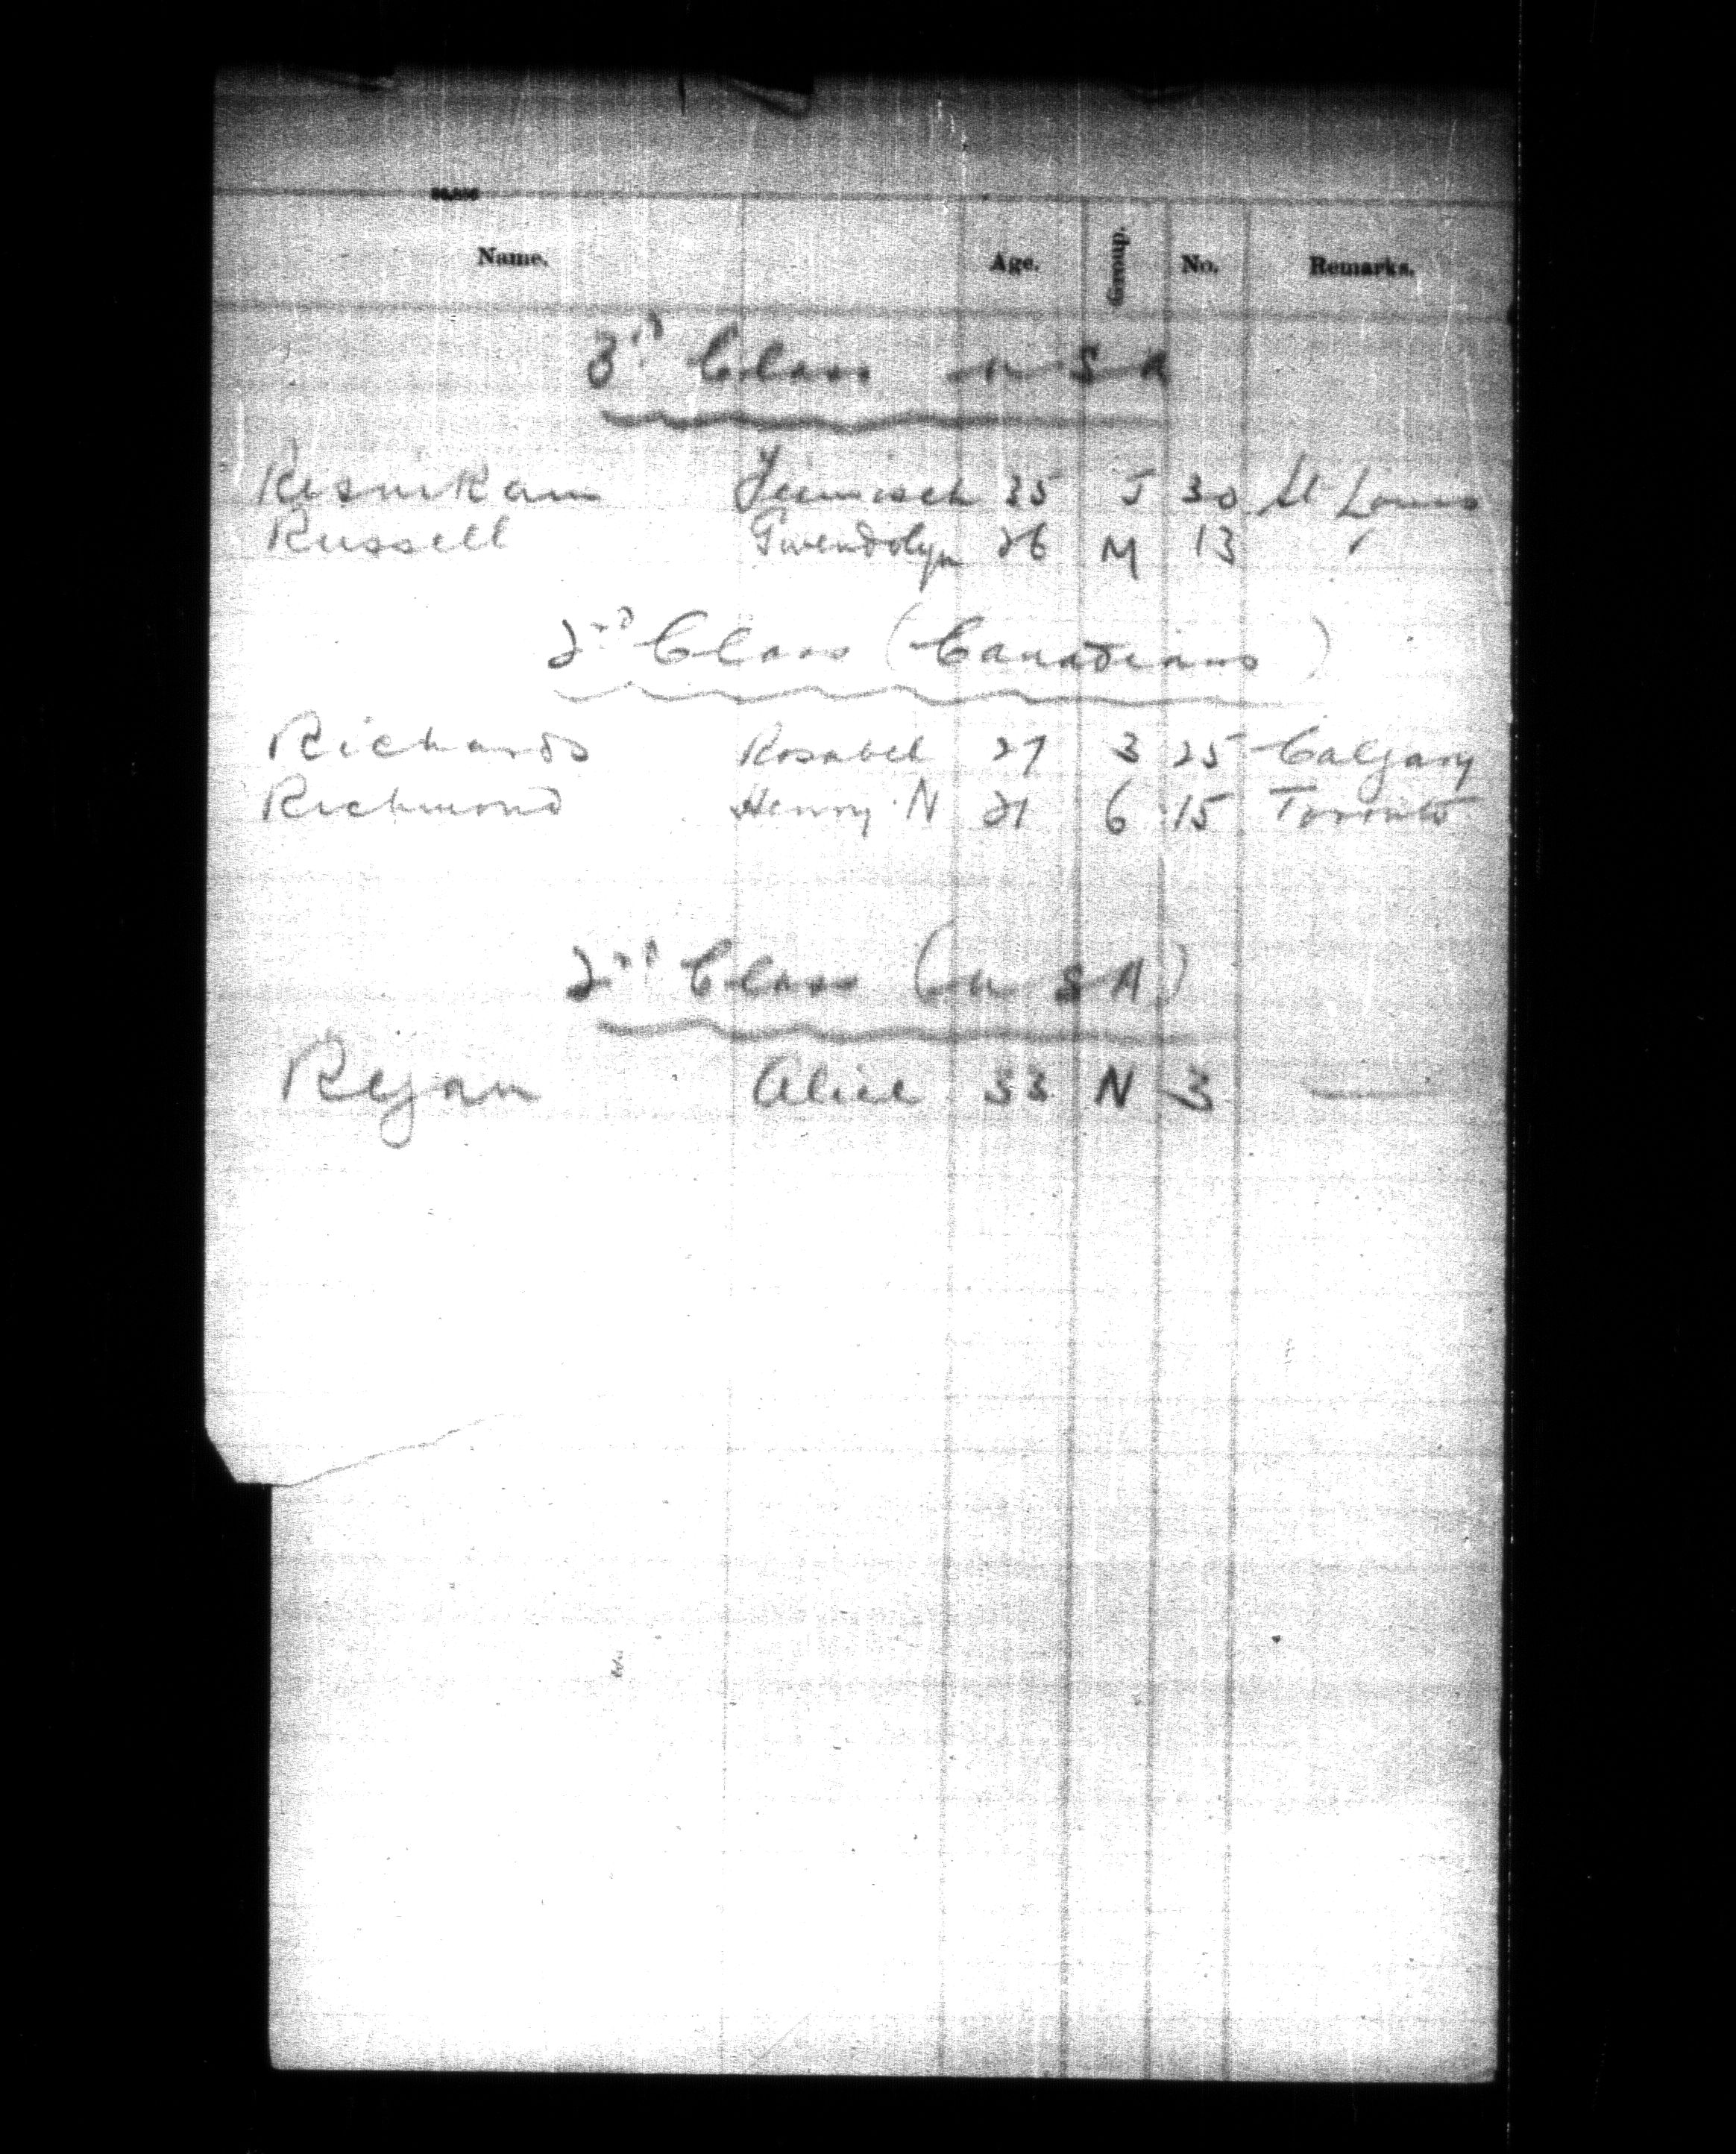 Name. Age. Group. No. Remarks.
3rd Class U S A
35 J 30 St Louis
Russell Gwendolyn 26 M 13 "
2nd Class (Canadians)
Richards Rosabel 27 3 25 Calgary
Richmond Henry N 21 6 15 Toronto
2nd Class (U S A)
Ryan Alice 33 N 3 —